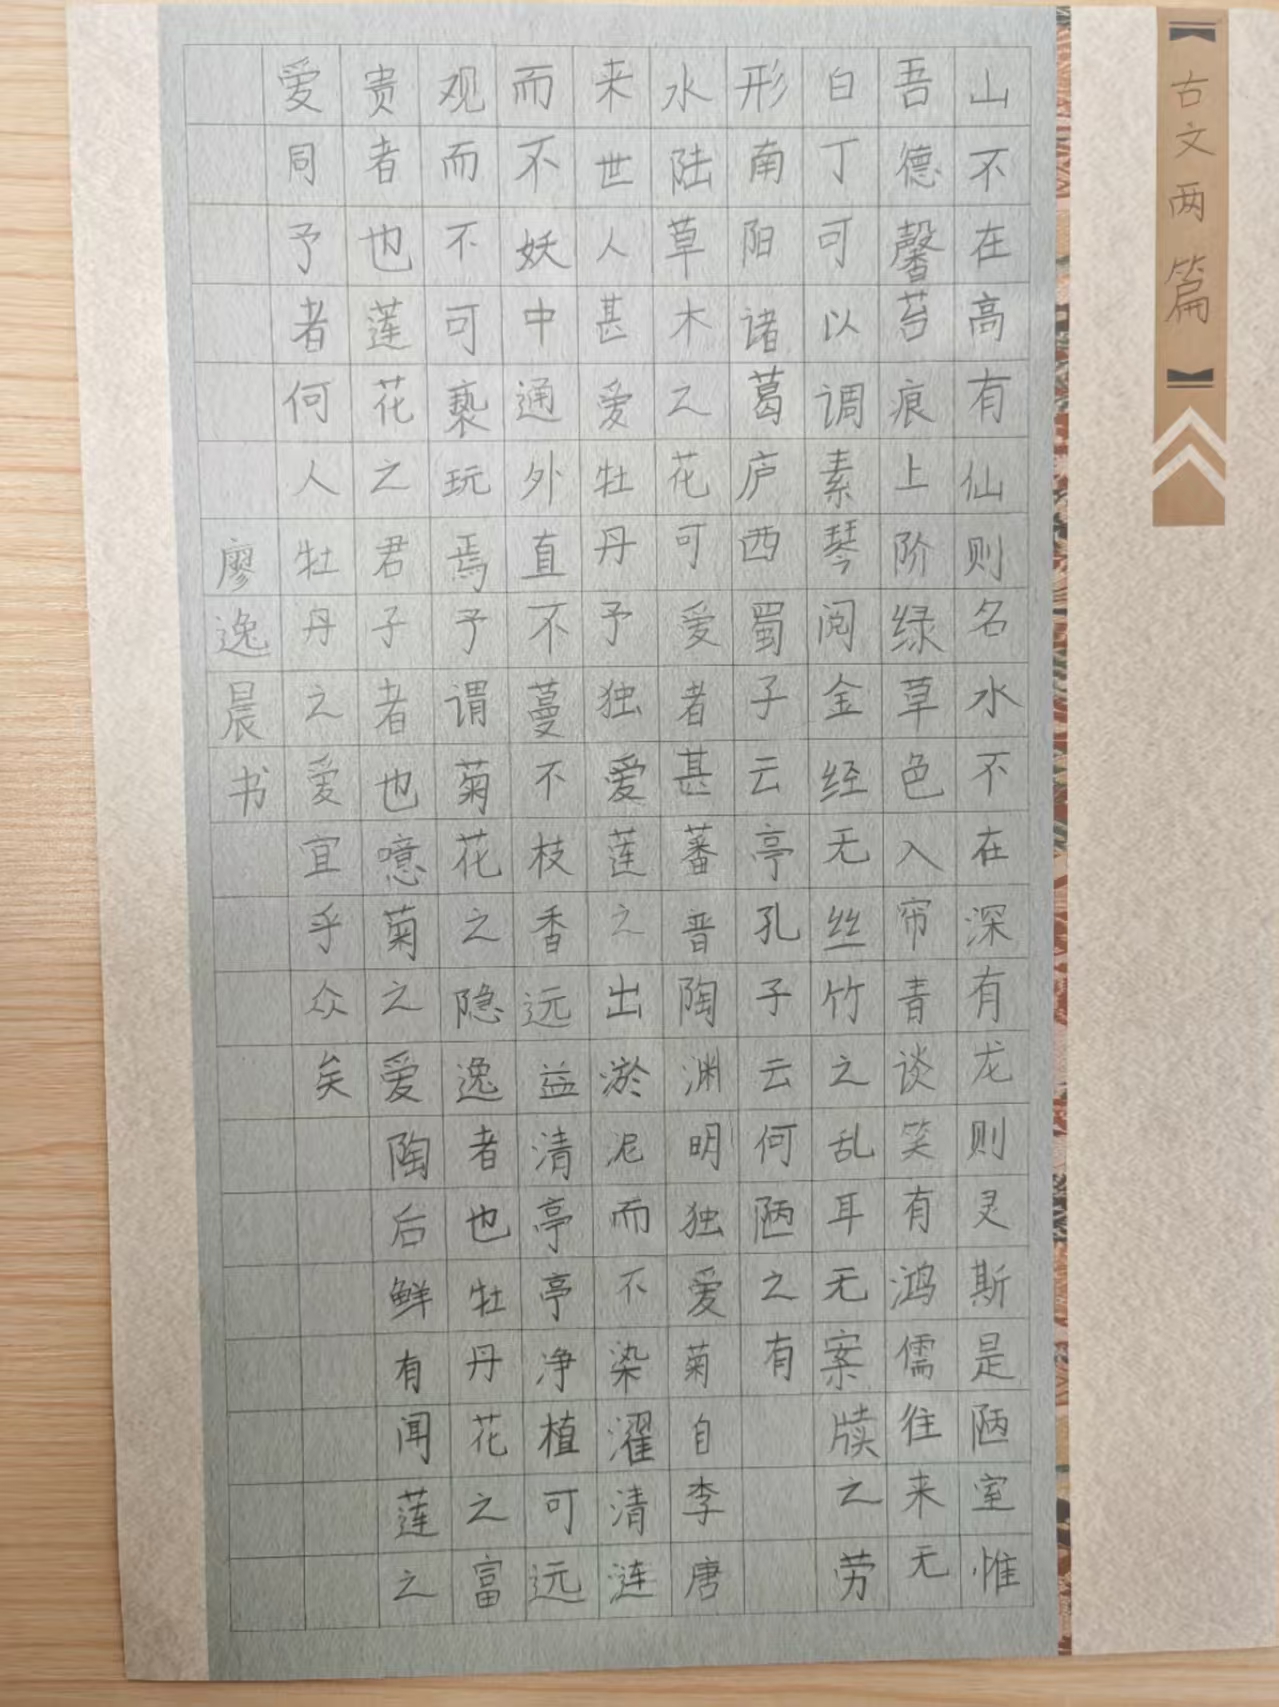 【古文两篇】
山不在高有仙则名水不在深有龙则灵斯是陋室惟
吾德馨苔痕上阶绿草色入帘青谈笑有鸿儒往来无
白丁可以调素琴阅金经无丝竹之乱耳无案牍之劳
形南阳诸葛庐西蜀子云亭孔子云何陋之有
水陆草木之花可爱者甚蕃晋陶渊明独爱菊自李唐
来世人甚爱牡丹予独爱莲之出淤泥而不染濯清涟
而不妖中通外直不蔓不枝香远益清亭亭净植可远
观而不可亵玩焉予谓菊花之隐逸者也牡丹花之富
贵者也莲花之君子者也噫菊之爱陶后鲜有闻莲之
爱同予者何人牡丹之爱宜乎众矣
廖逸晨书